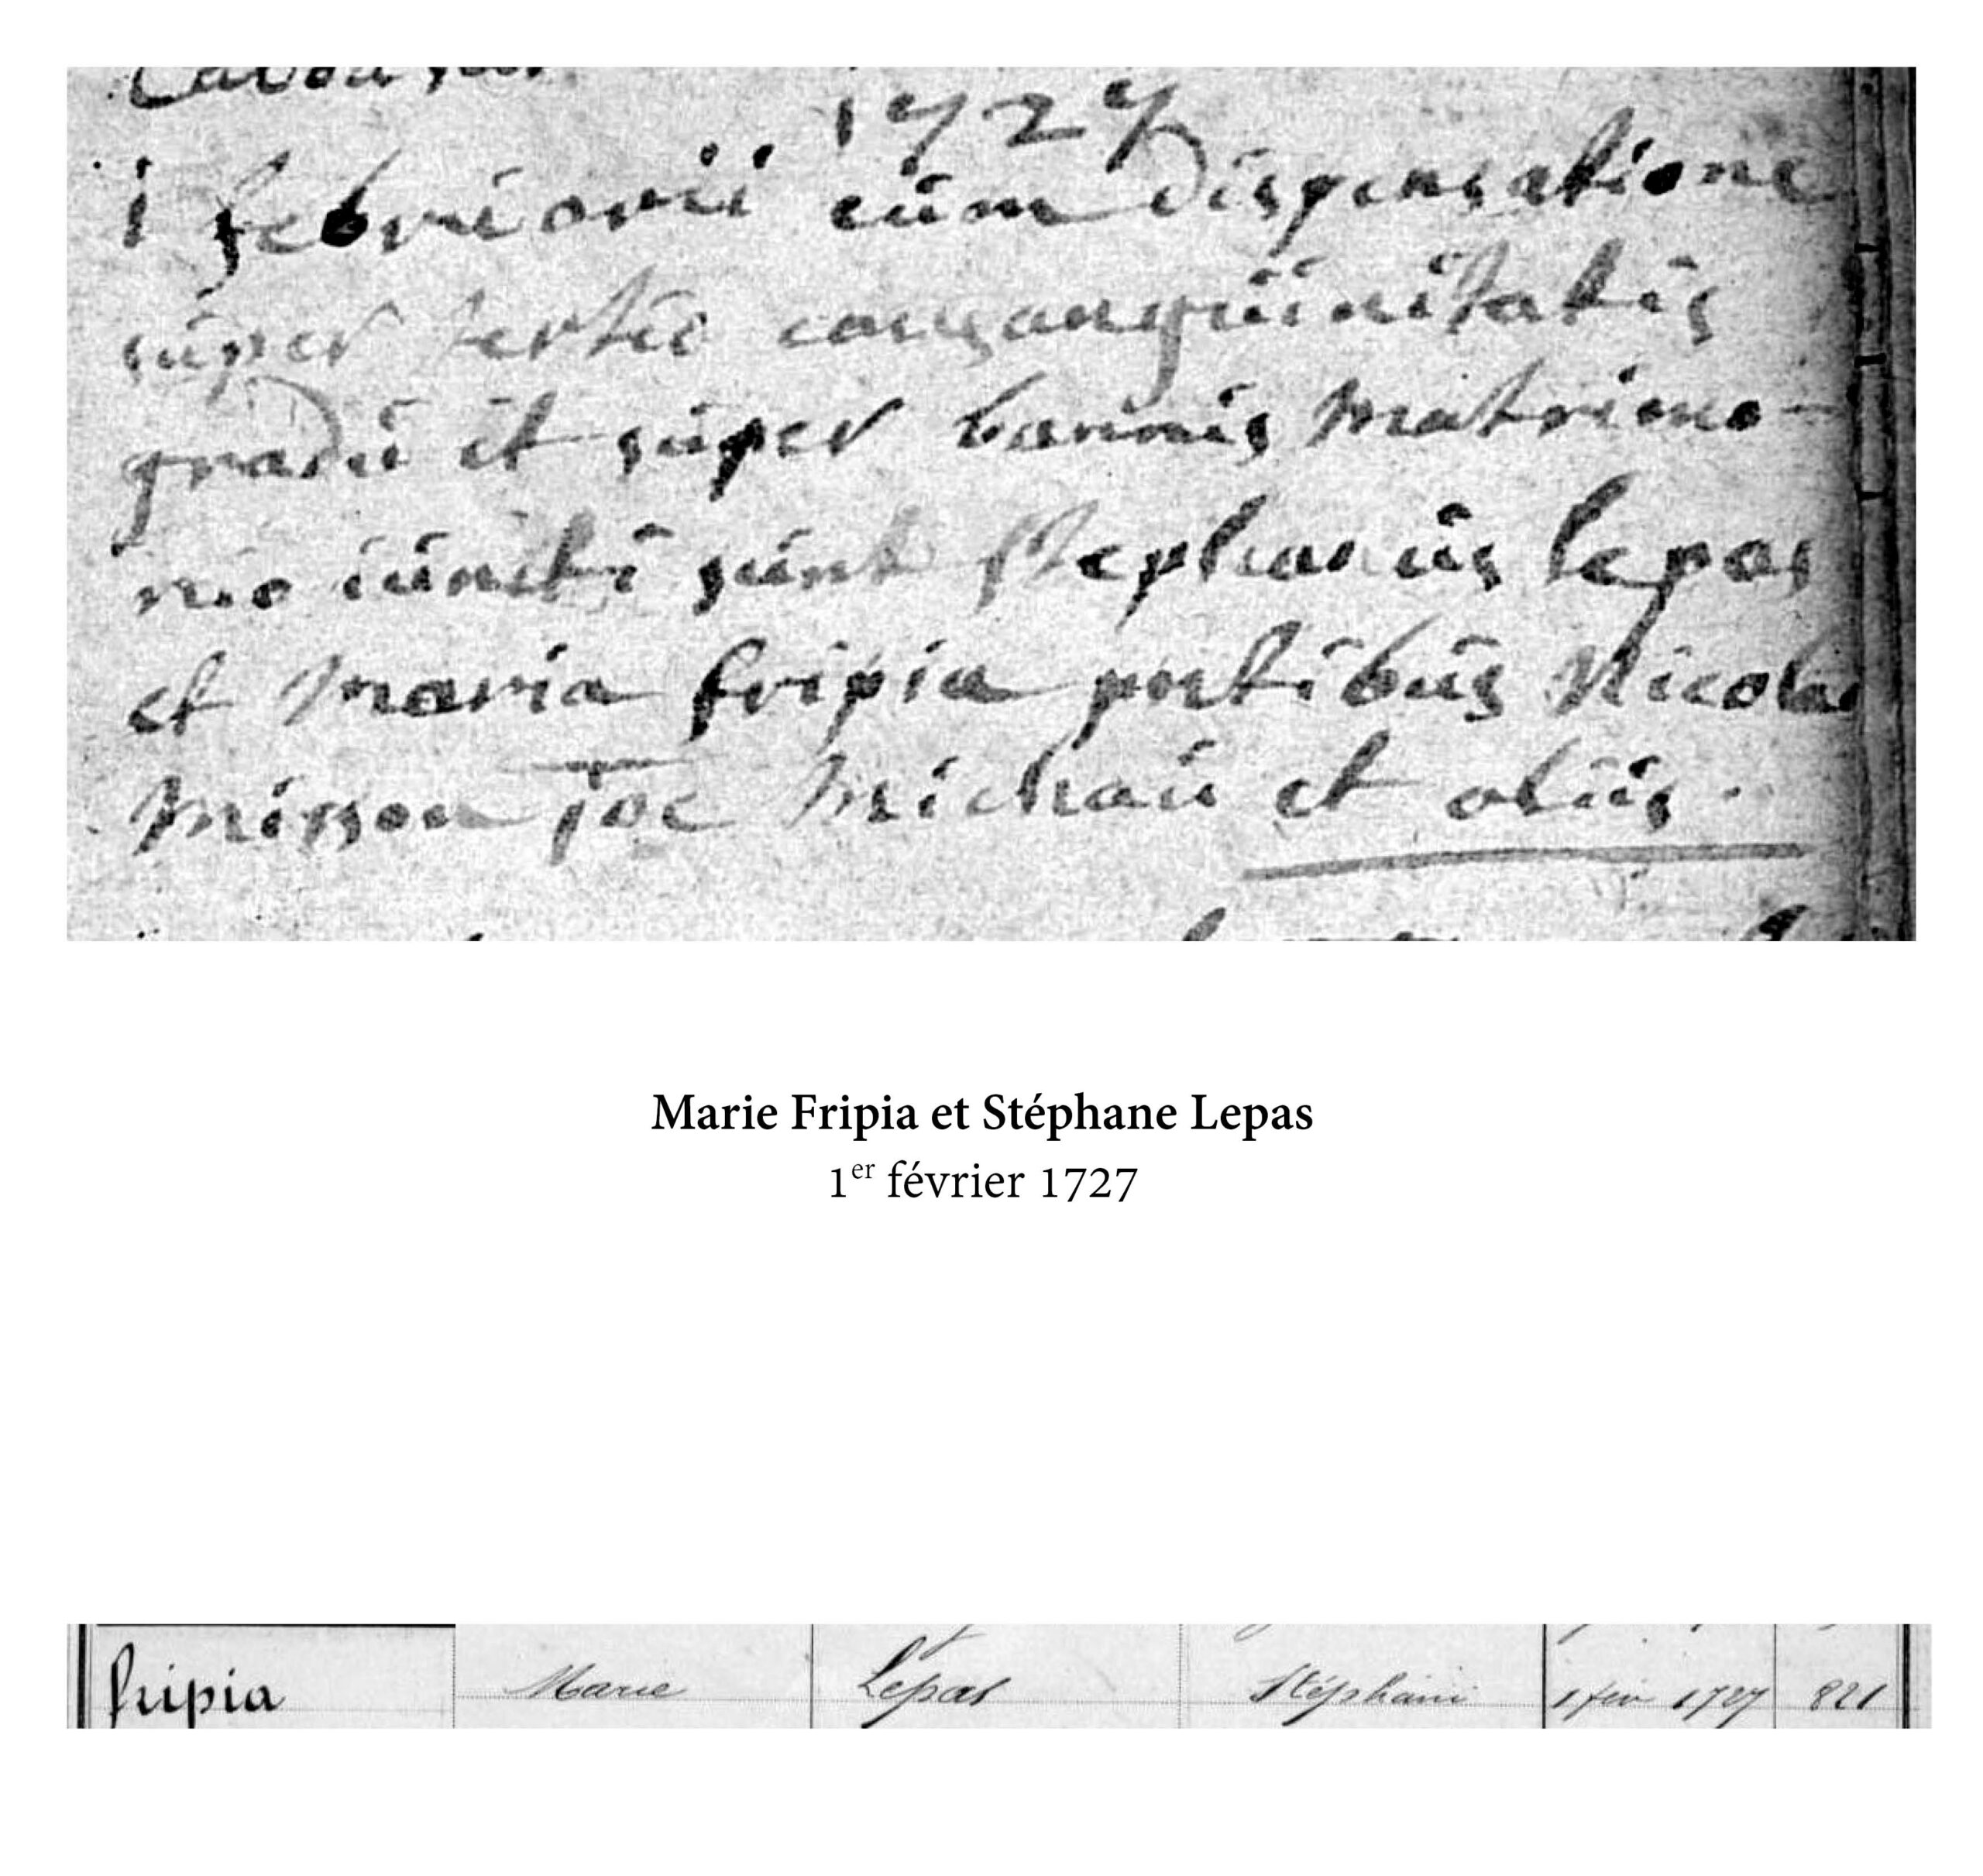 1727
1 februarii cum dispensatione
super tertio consanguinitatis
gradu et super bannis matrimo-
nio iuncti sunt stephanus lepas
et maria fripia pntibus Nicolao
misson joe michau et aliis.
Marie Fripia et Stéphane Lepas
1er février 1727
fripia Marie Lepas 1 fev 1727 821